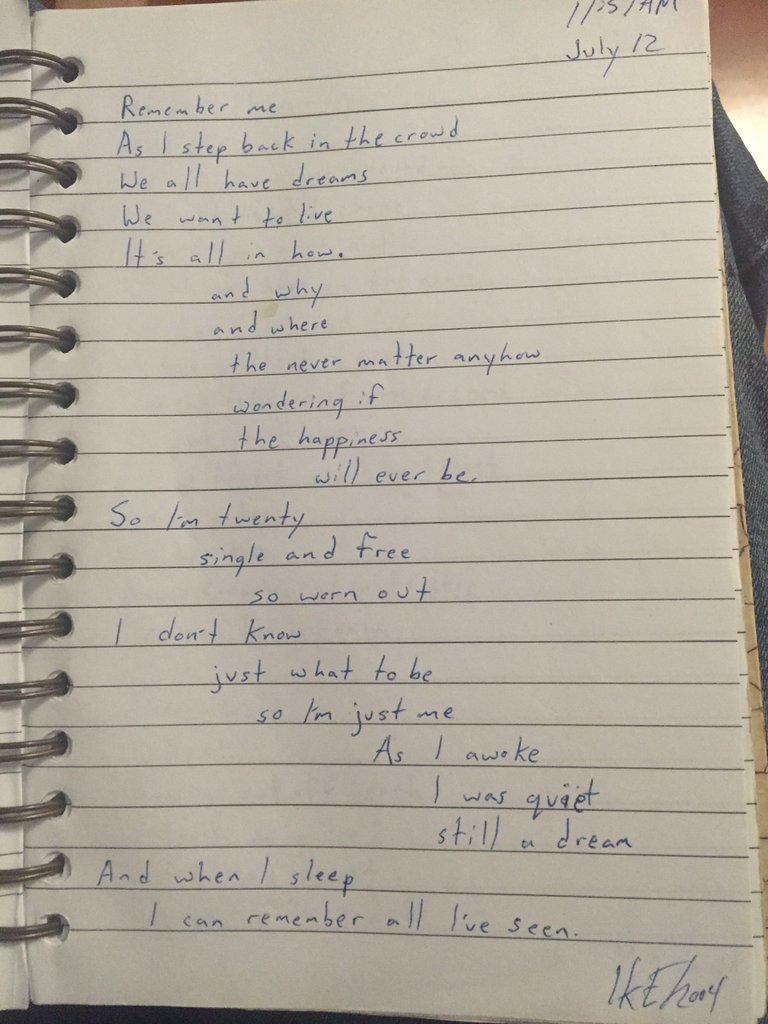 July 12
Remember me
As I step back in the crowd
We all have dreams
We want to live
It's all in how.
and why
and where
the never matter anyhow
wondering if
the happiness
will ever be.
So I'm twenty
single and free
so worn out
I don't know
just what to be
so I'm just me
As I awoke
I was quiet
still a dream
And when I sleep
I can remember all I've seen.
2004